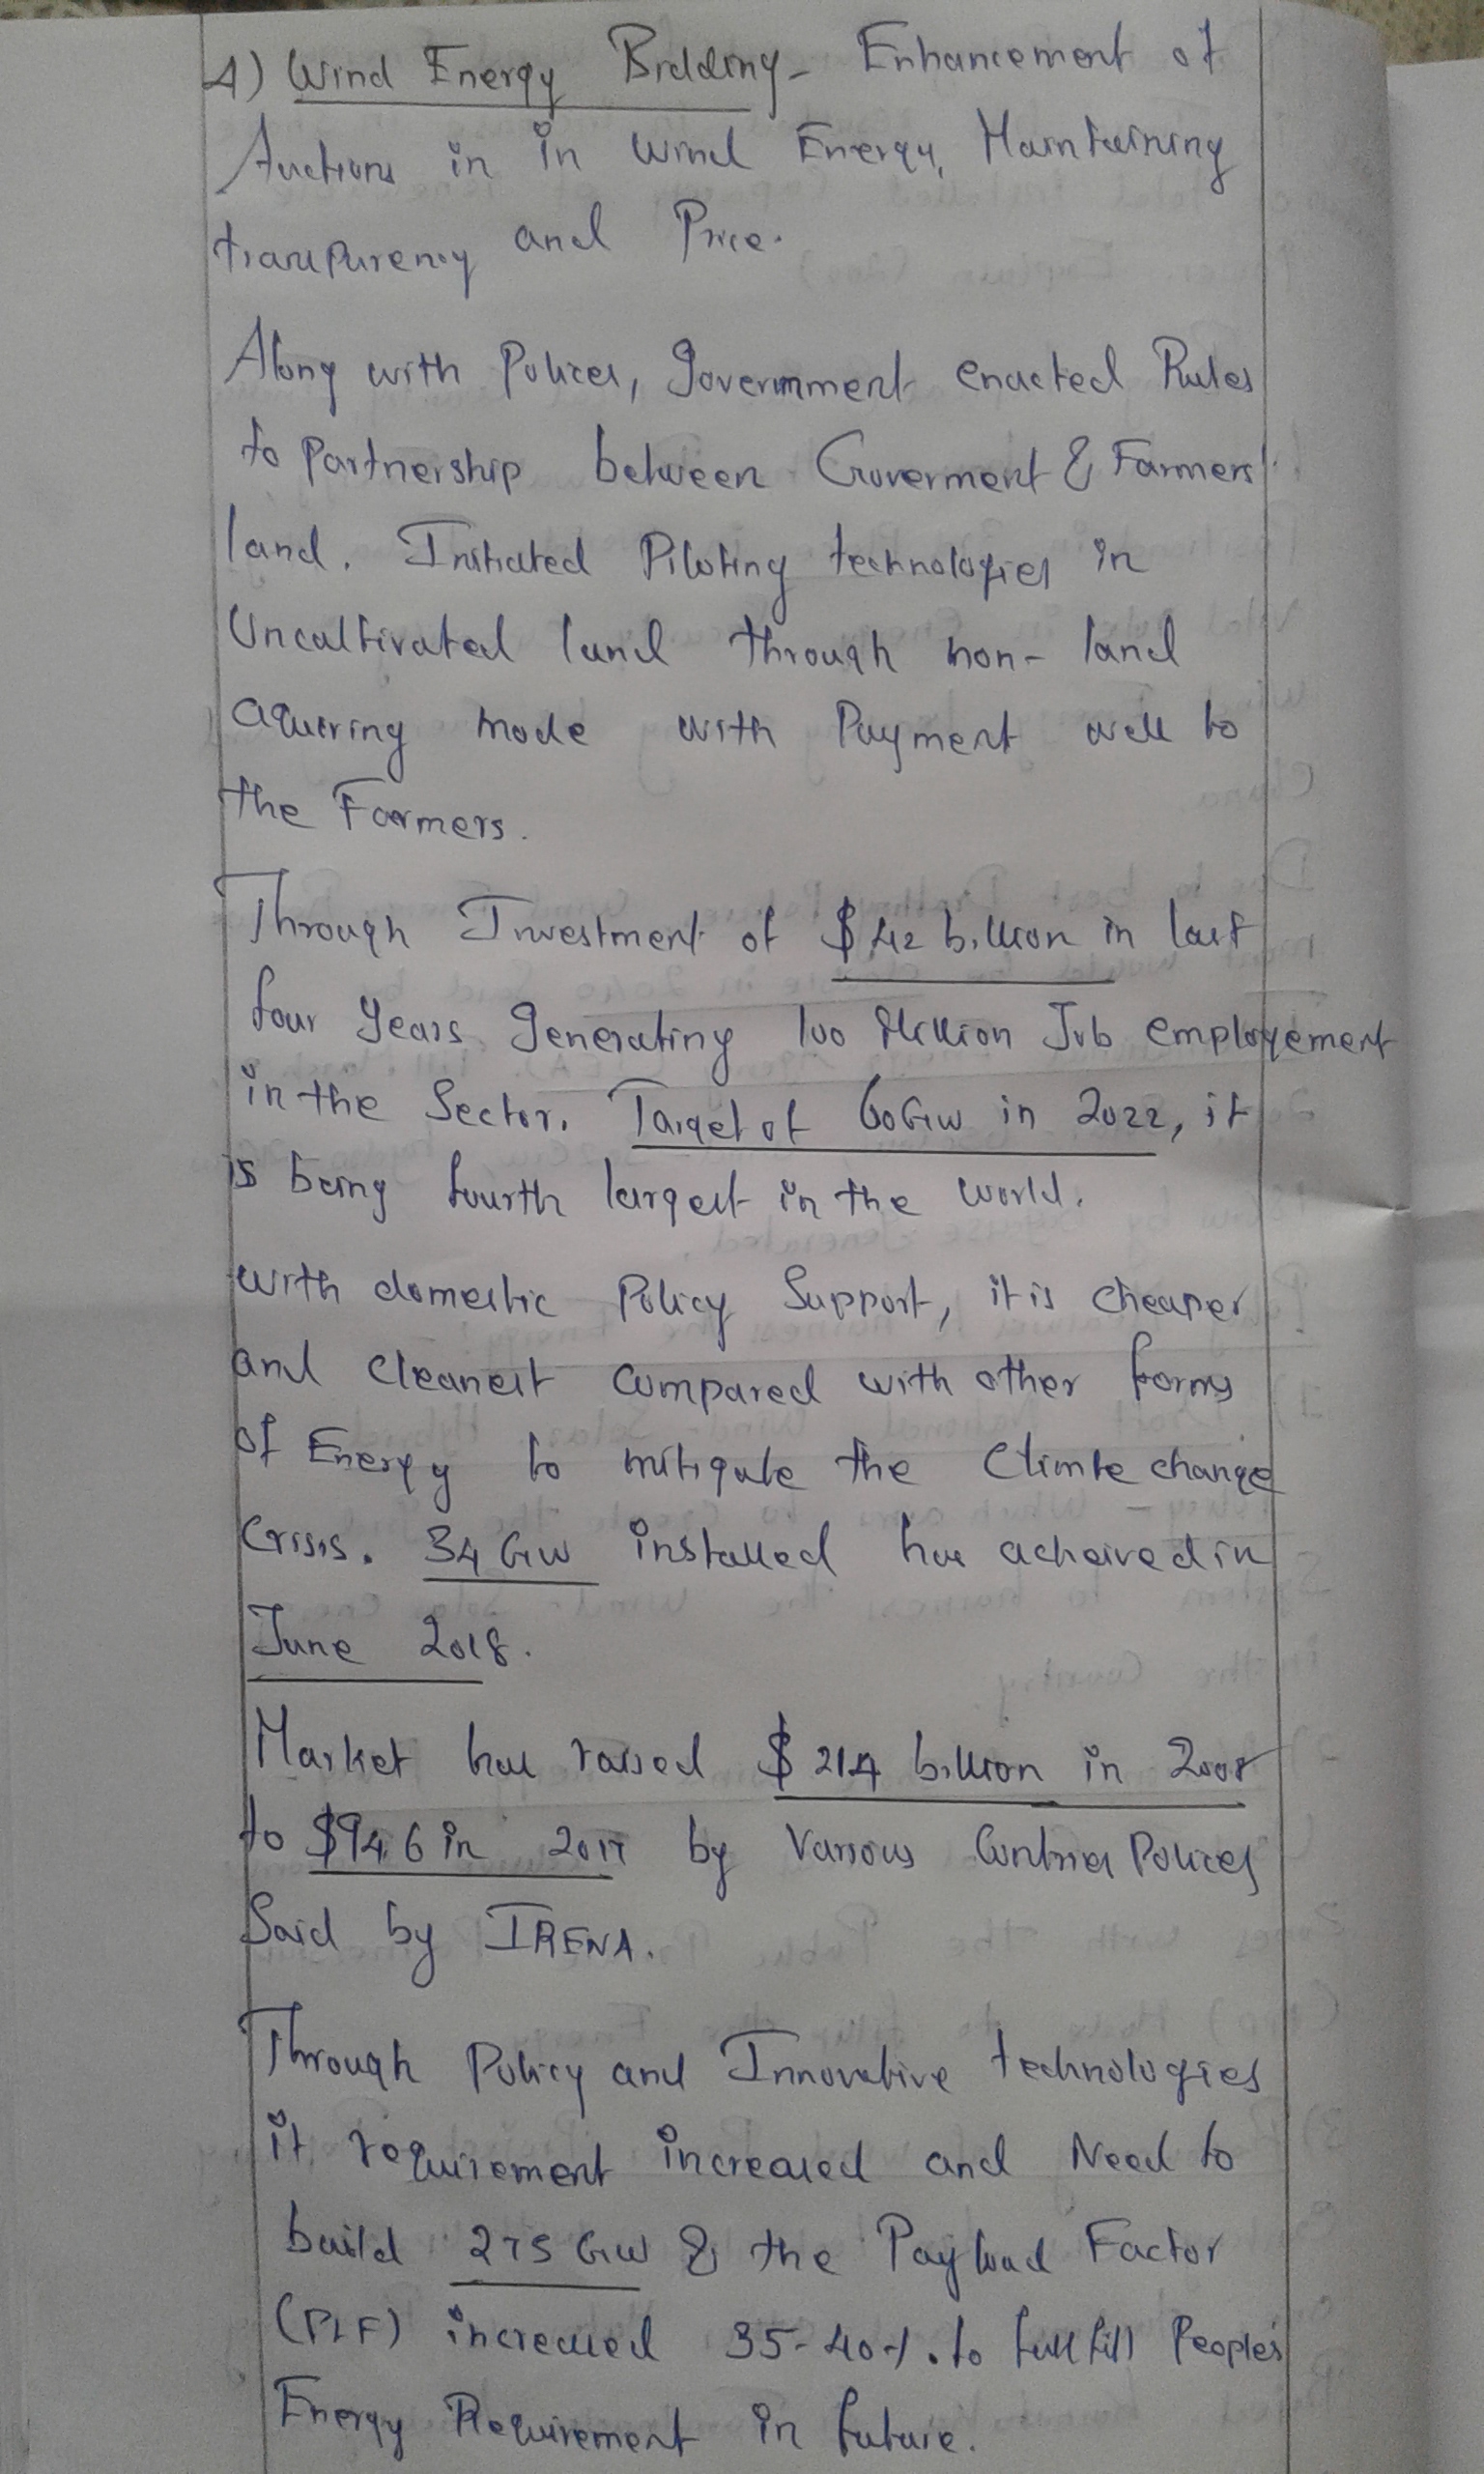 4) Wind Energy Bidding - Enhancement of
Auctions in in Wind Energy, Maintaining
transparency and Price.
Along with Polices, Government enacted Rules
to Partnership between Goverment & Farmers'
land. Initiated Piloting technologies in
Uncultivated land through non-land
aquiring mode with Payment well to
the Farmers.
Through Investment of $42 billion in last
four years generating 100 Million Job employement
in the Sector. Target of 60GW in 2022, it
is being fourth largest in the world.
with domestic Policy Support, it is cheaper
and cleanest compared with other forms
of Energy to mitigate the Climte change
Crisis. 34 GW installed has acheived in
June 2018.
Market has raised $ 214 billion in 2008
to $94.6 in 2017 by Various Contries Polices
Said by IRENA.
Through Policy and Innovative technologies
it requirement increased and Need to
build 275 GW & the Payload Factor
(PLF) increased 35-40%. to fullfill People's
Energy Requirement in future.